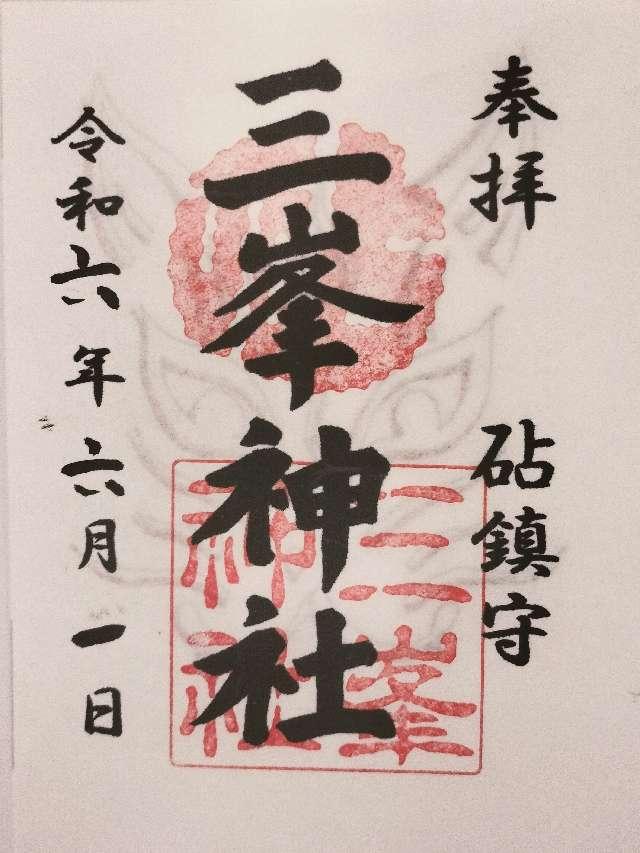 奉拝
砧鎮守
三峯神社
三峯
神社
令和六年六月一日